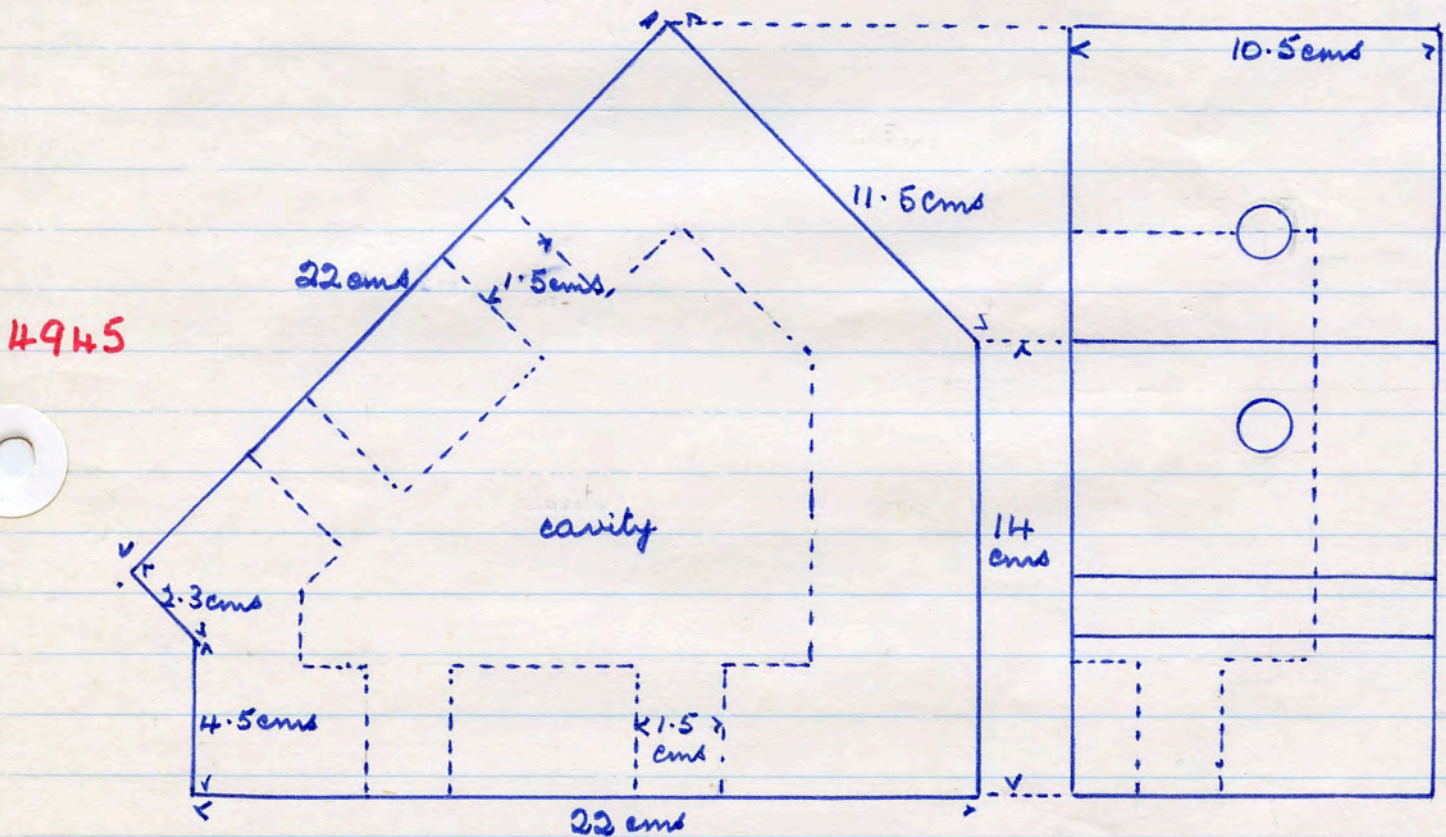 10.5cms
11.5cms
22cms
1.5cms
4945
cavity
14
cms
2.3cms
4.5cms
1.5
cms
22cms